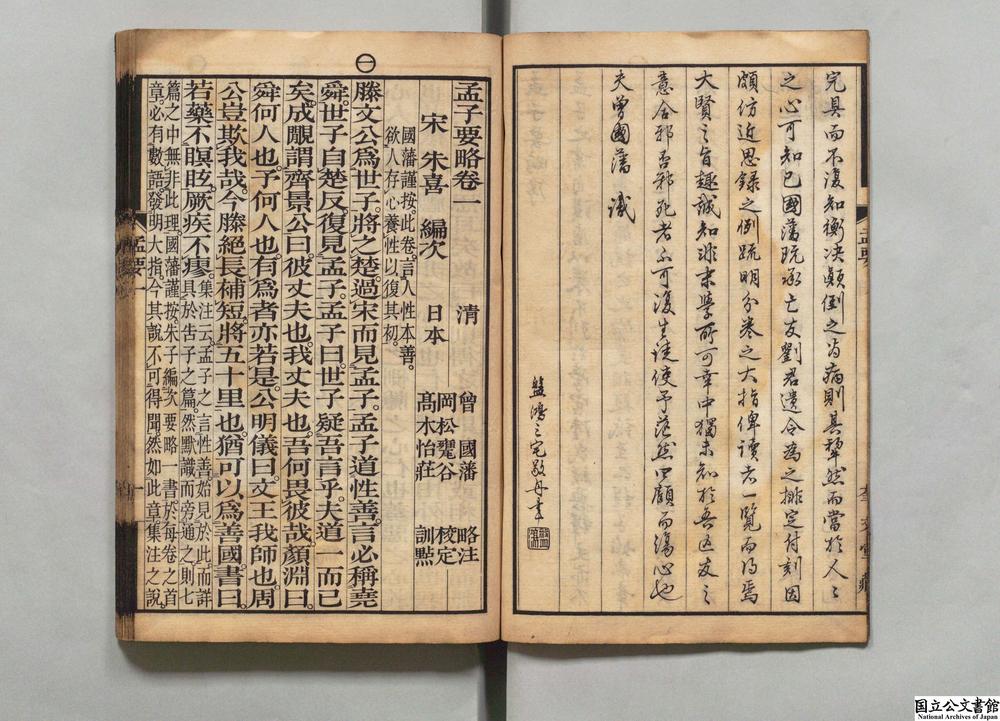 完具而不復知衡決顛倒之為病則其犂然而當於人人
之心可知已國藩既承亡友劉君遺令為之排定付刻因
頗仿近思錄之例疏明分卷之大指俾讀者一覽而得焉
大賢之旨趣誠知非末學所可幸中獨未知於吾亡友之
意合邪否邪死者不可復生徒使予茫然四顧而傷心也
夫曾國藩識
孟子要略卷一
宋 朱熹 編次 清 曾國藩 略注
日本 岡松甕谷 校定
髙木怡莊 訓點
國藩謹按。此卷。言人性本善。
欲人存心養性以復其初。
滕文公爲世子。將之楚。過宋而見孟子。孟子道性善。言必稱堯
舜。世子自楚反。復見孟子。孟子曰。世子疑吾言乎。夫道一而已
矣。成覸謂齊景公曰。彼丈夫也。我丈夫也。吾何畏彼哉。顏淵曰。
舜何人也。予何人也。有爲者亦若是。公明儀曰。文王我師也。周
公豈欺我哉。今滕絕長補短。將五十里也。猶可以爲善國。書曰。
若藥不瞑眩。厥疾不瘳。
集注云。孟子之言性善。始見於此。而詳
具於告子之篇。然默識而旁通之。則七
篇之中。無非此理。國藩謹按。朱子編次要略一書。於每卷之首
章。必有數語。發明大指。今其說不可得聞。然如此章集注之說。
孟要 一
一
国立公文書館
National Archives of Japan